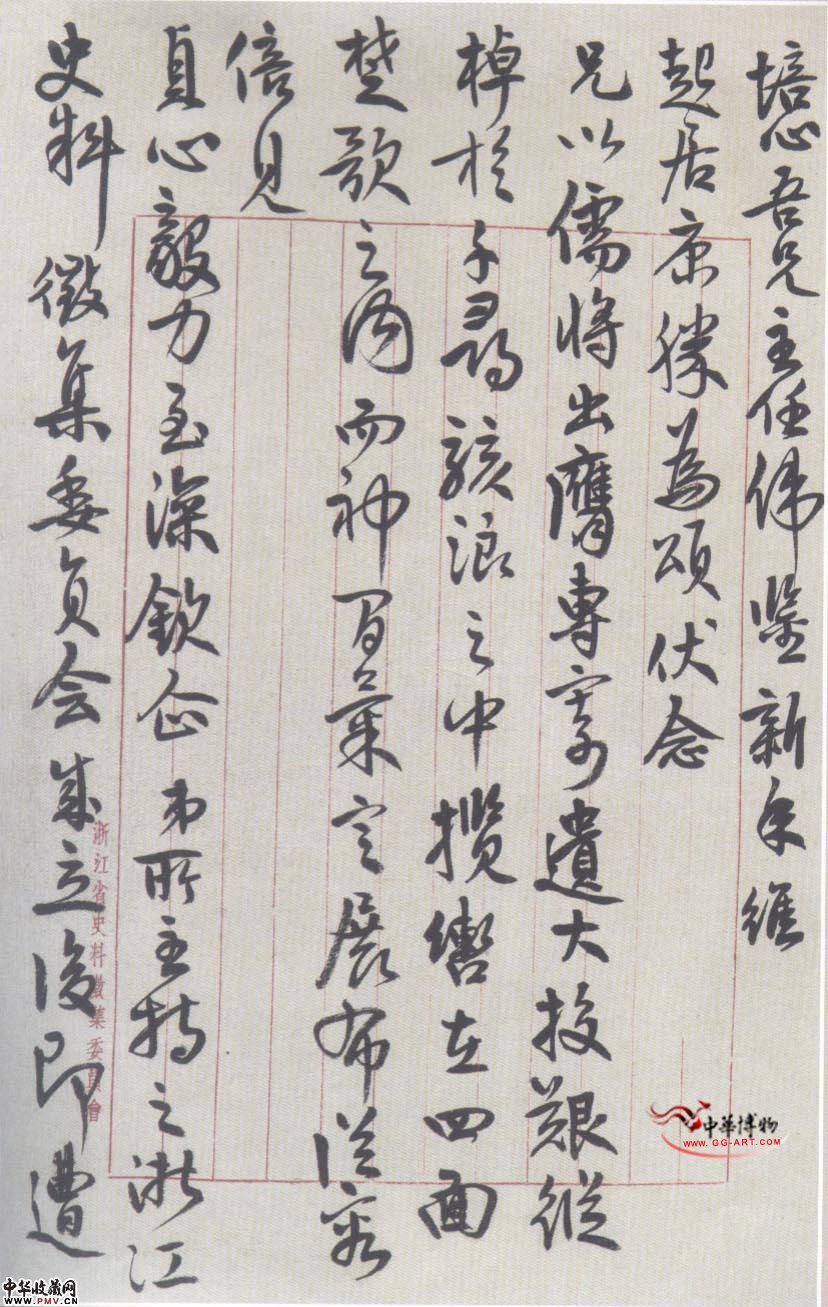 培心吾兄主任伟鑒新年維
起居康勝為頌伏念
兄以儒將出膺專寄遺大投艱縱
棹於千尋駭浪之中攬轡在四面
楚歌之內而神閒氣定展布從容
倍見
貞心毅力至深欽企弟所主持之浙江
史料徵集委員会成立後即遭
浙江省史料徵集委員會
中華博物
WWW.GG-ART.COM
中华收藏网
WWW.PMV.CN